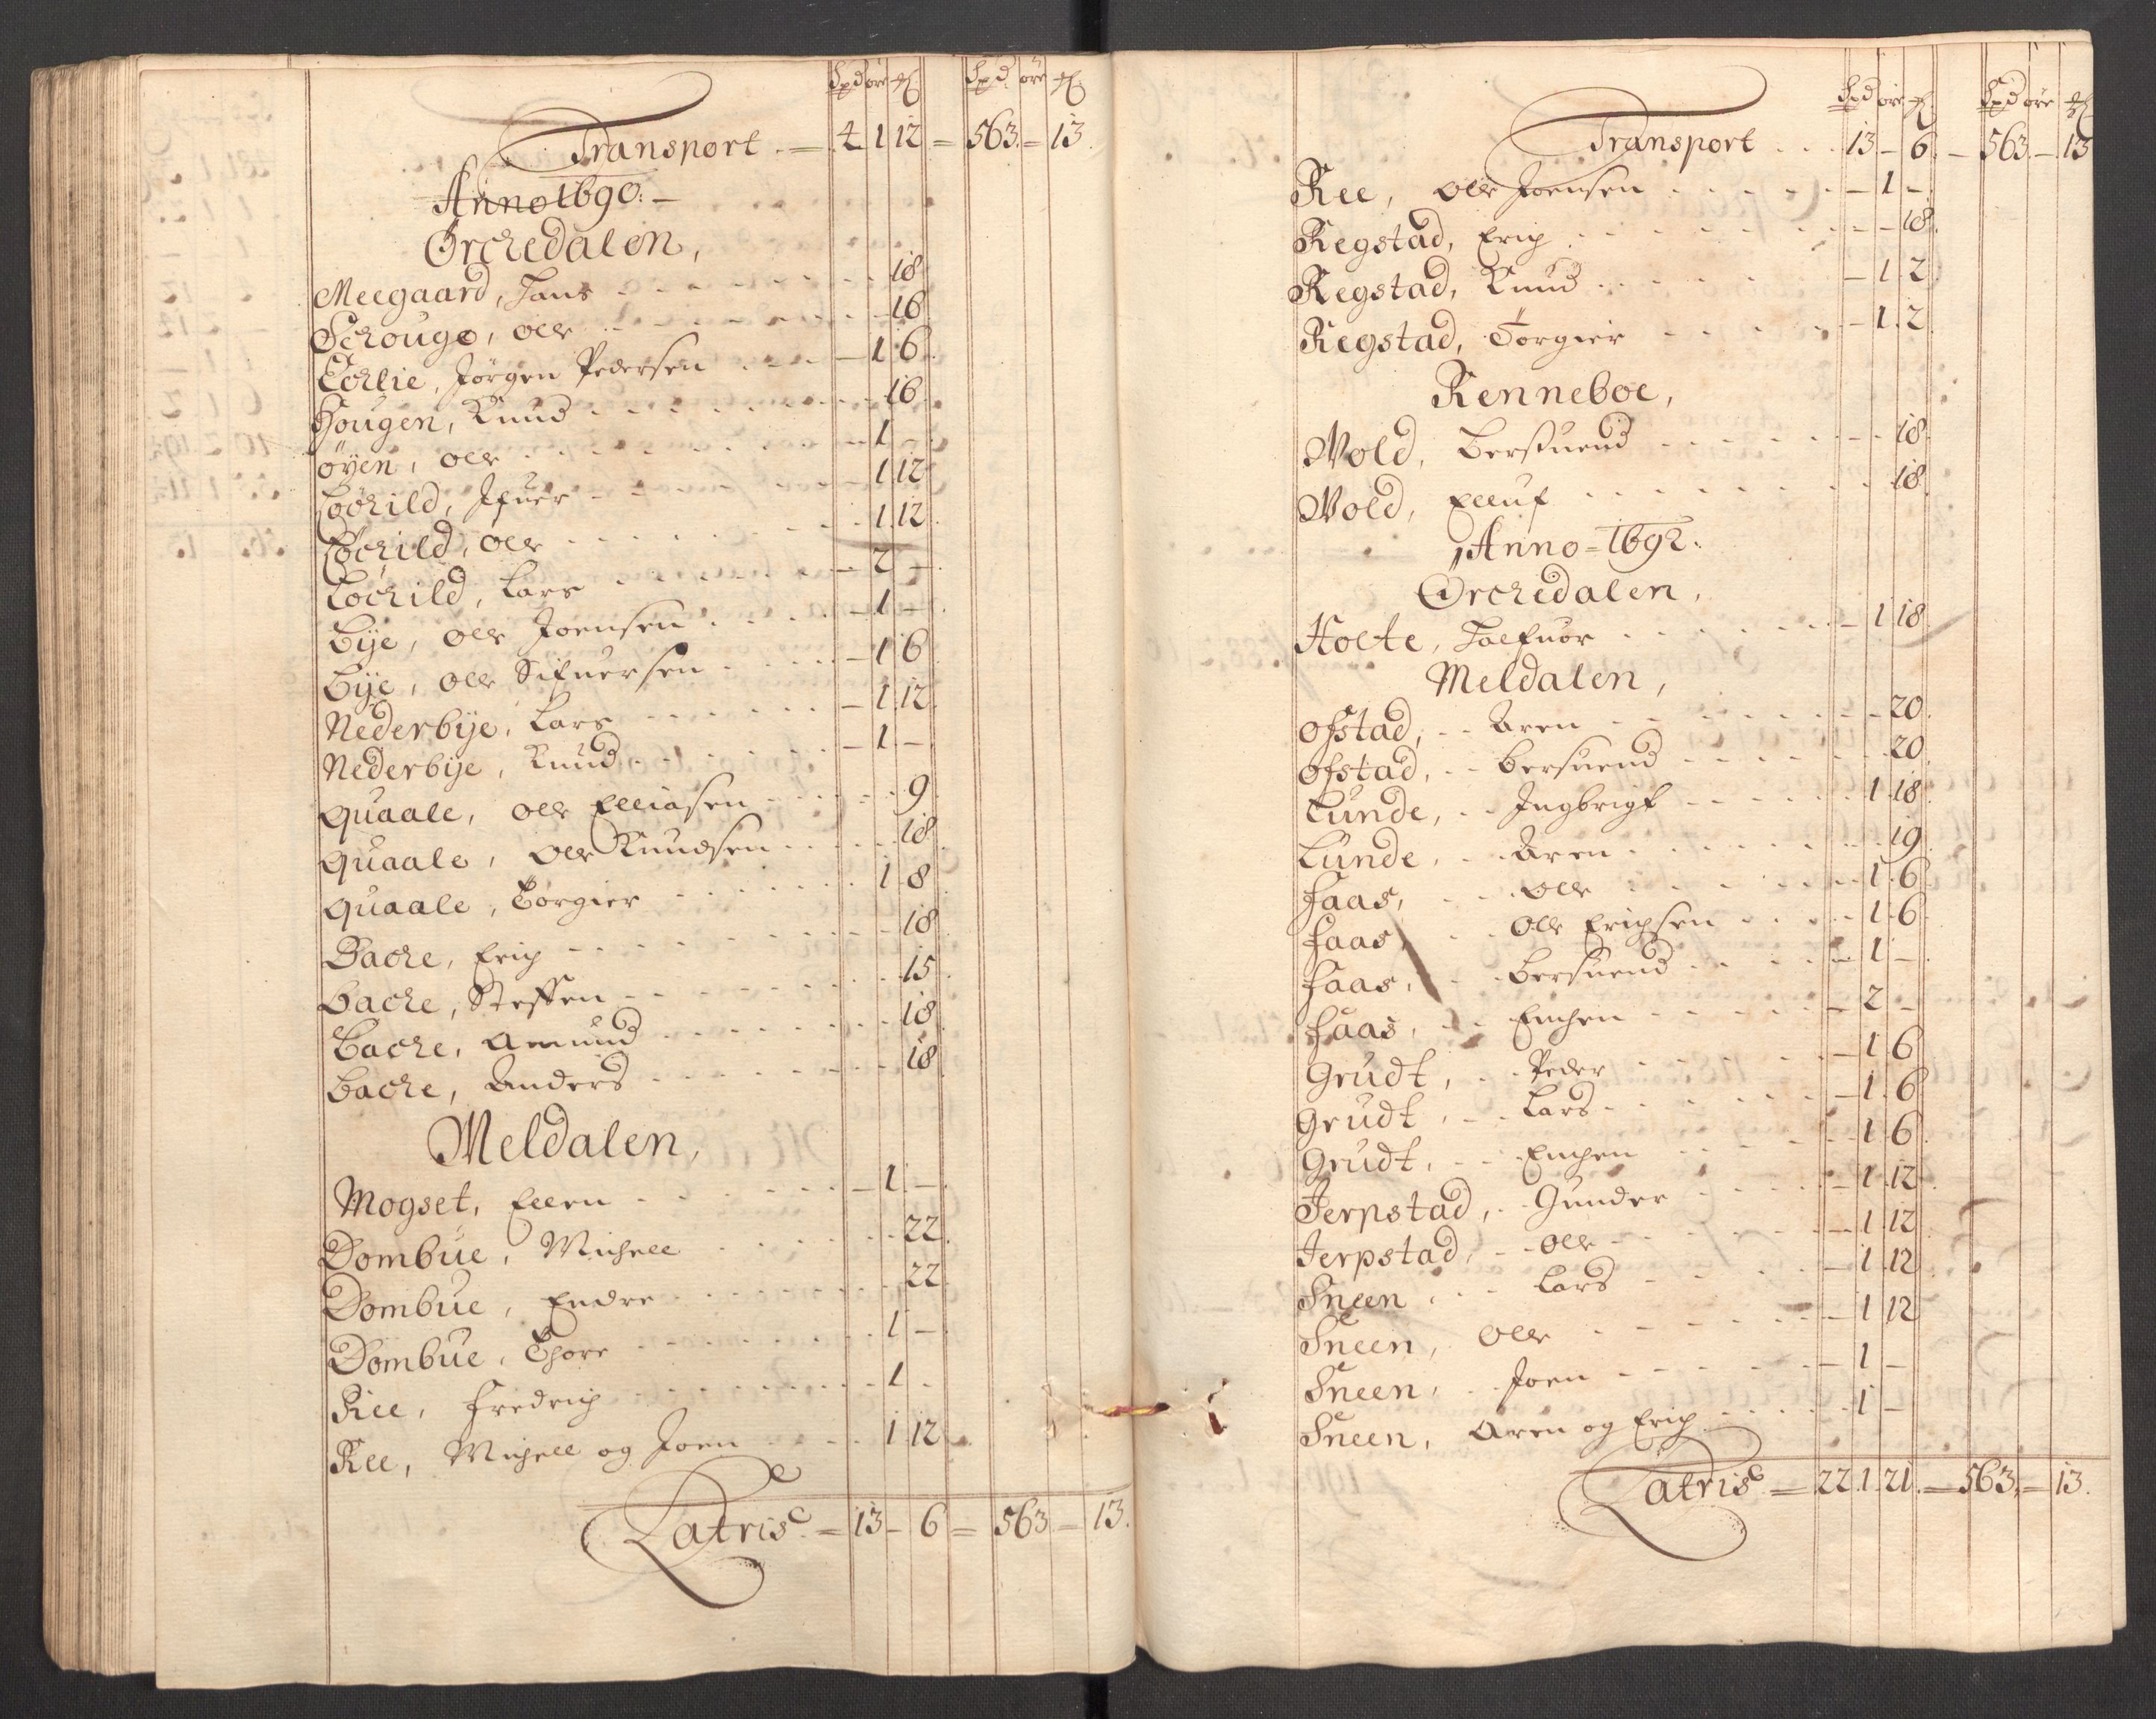 Lpd øre
Transport - 4 1 12 = 563 = 13
Anno 1690
Orchedalen,
Meegaard, Hans - - - 18
Schouge, Olle - - - 16
Echlie, Jørgen Pedersen - 1 6
Hougen, Knud - - - 16
øyen, Olle - 1 -
Løchild, Ifuer - 1 12
Løchild, Olle - 1 12
Løchild, Lars - 2 -
Bÿe, Olle Joensen - 1 -
Bÿe, Olle Sifuersen - 1 6
Nederbÿe, Lars - 1 12
Nederbÿe, Knud - 1 -
Quaale, Olle Elliasen - - 9
Quaale, Olle Knudsen - - 18
Quaale, Torgier - 1 8
Bache, Erich - - - 18
Bache, Steffen - - - 15
Bache, Amund - - - 18
Bache, Anders - - - 18
Meldalen,
Mogset, Ellen - 1 -
Dombue, Michell - - 22
Dombue, Endre - - 22
Dombue, Thore - 1 -
Ree, Fredrich - 1 -
Ree, Michell og Joen - 1 12
Latris = 13 - 6 = 563 = 13
Lpd øre
Transport - 13 - 6 - 563 - 13
Ree, Olle Joensen - 1 -
Regstad, Erich - - 18
Regstad, Knud - 1 2
Regstad, Torgier - 1 2
Renneboe,
Wold, Bersuend - - 18
Wold, Elluf - - 18
Anno = 1692.
Orchedalen,
Holte, Halfuor - 1 18
Meldalen,
Ofstad, - - Aren - - 20
Ofstad, - - Bersuend - - 20
Lunde, - - Ingbrigt - 1 18
Lunde, - - Aren - - 19
Faas, - - Olle - 1 6
Faas, - - Olle Erichsen - 1 6
Faas, - - Bersuend - 1 -
Faas, - - Enchen - 2 -
Grudt, - - Peder - 1 6
Grudt, - - Lars - 1 6
Grudt, - - Enchen - 1 6
Jerpstad, - - Gunder - 1 12
Jerpstad, - - Olle - 1 12
Sneen, - - Lars - 1 12
Sneen, Olle - 1 12
Sneen, - - Joen - 1 -
Sneen, Aren og Erich - 1 -
Latris = 22 1 21 = 563 = 13